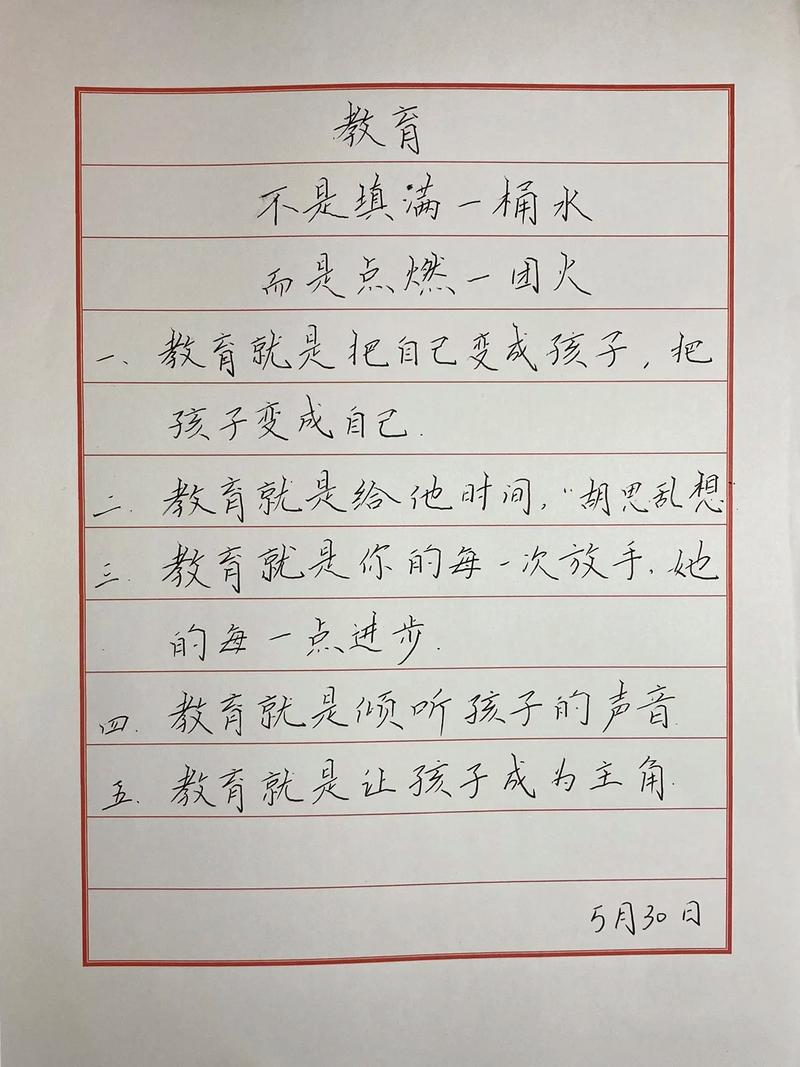 教育
不是填满一桶水
而是点燃一团火
一、教育就是把自己变成孩子，把
孩子变成自己.
二. 教育就是给他时间，“胡思乱想
三. 教育就是你的每一次放手、她
的每一点进步.
四. 教育就是倾听孩子的声音
五. 教育就是让孩子成为主角.
5月30日